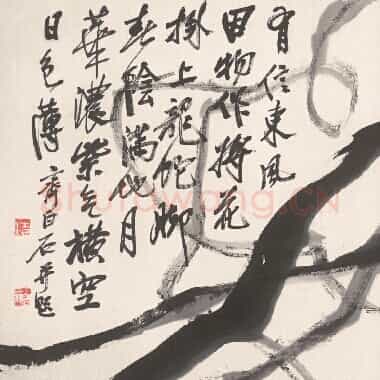 有信東風
因物作將花
掛上龍蛇腳
春陰滿地月
華濃紫气橫空
日色薄 齊白石并題
Shufawang.CN